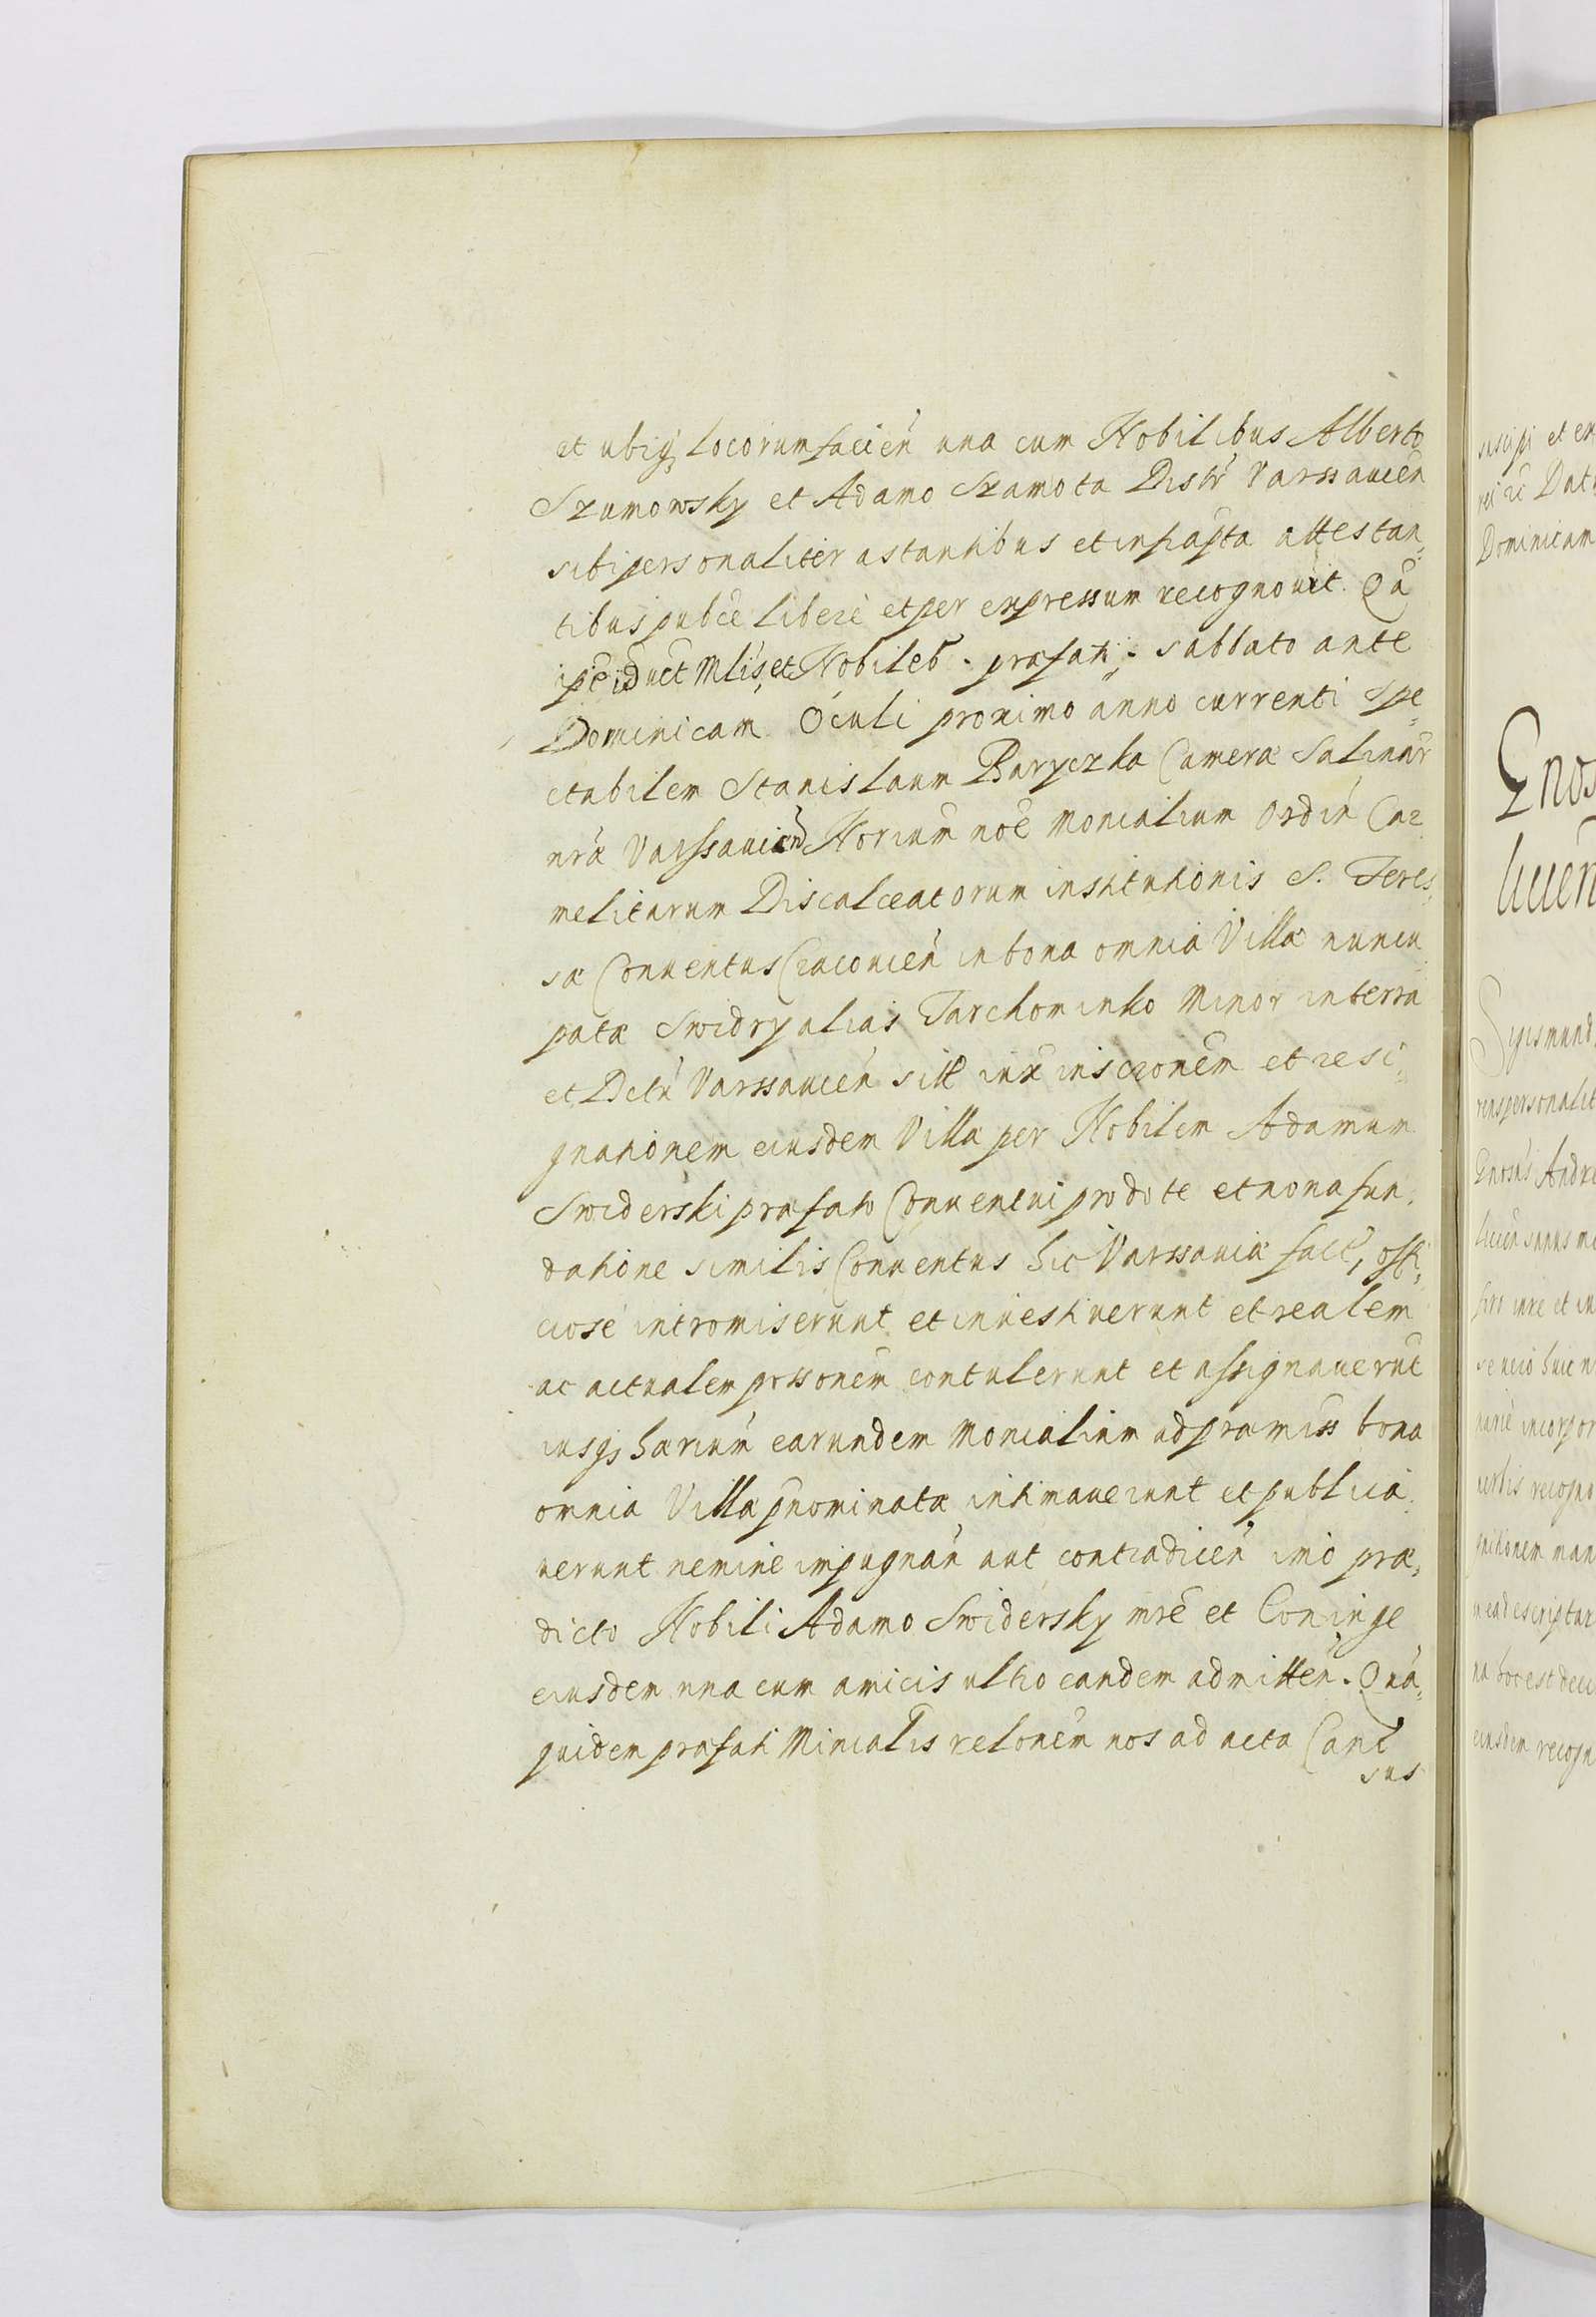 et ubiq locorum facień una cum Nobilibus Alberto
Szumowsky et Adamo Szamota Distr Varssauień
sibi personaliter astantibus et infrapta attestan„
tibus publce libere et per expressum recognouit. Qa
ipe Mlis, et Nobiles . præfati . sabbato ante
Dominicam Oculi proximo anno currenti Spe„
ctabilem Stanislaum Baryczka Cameræ Salinar
nræ Varssauień Noriūm noē Monialium Ordin Car„
melitarum Discalceatorum institutionis S. Teres„
sæ Conuentus Cracouień in bona omnia Villæ nuncu„
patæ Swidry alias Tarchominko Minor in terra
et Dctu Varssauień sitt iux inscronem et resi„
gnationem eiusdem Villæ per Nobilem Adamum
Swiderski præfato Conuentui pro dote et noua fun„
datione similis Conuentus hic Varssauiæ fact, offi„
ciose intromiserunt et inuestiuerunt et realem
ac actualem pssonem contulerunt et assignauerūt
iusq harum earundem Monialium ad præmiss bona
omnia Villæ pnominatæ intimauerunt et publica„
uerunt nemine impugnań aut contradicen imo præ„
dicto Nobili Adamo Swidersky mre et Coniuge
eiusdem una cum amicis ultro eandem admitten. Qua„
quidem præfati Minialis relonem nos ad acta Canc
sus
suscipi et
Dat
Dominicam
Gnos
Sigismund
personalit
Andre
iure et in
huic n
incorpor
recogno
man
descriptar
hoc est
eiusdem recogn